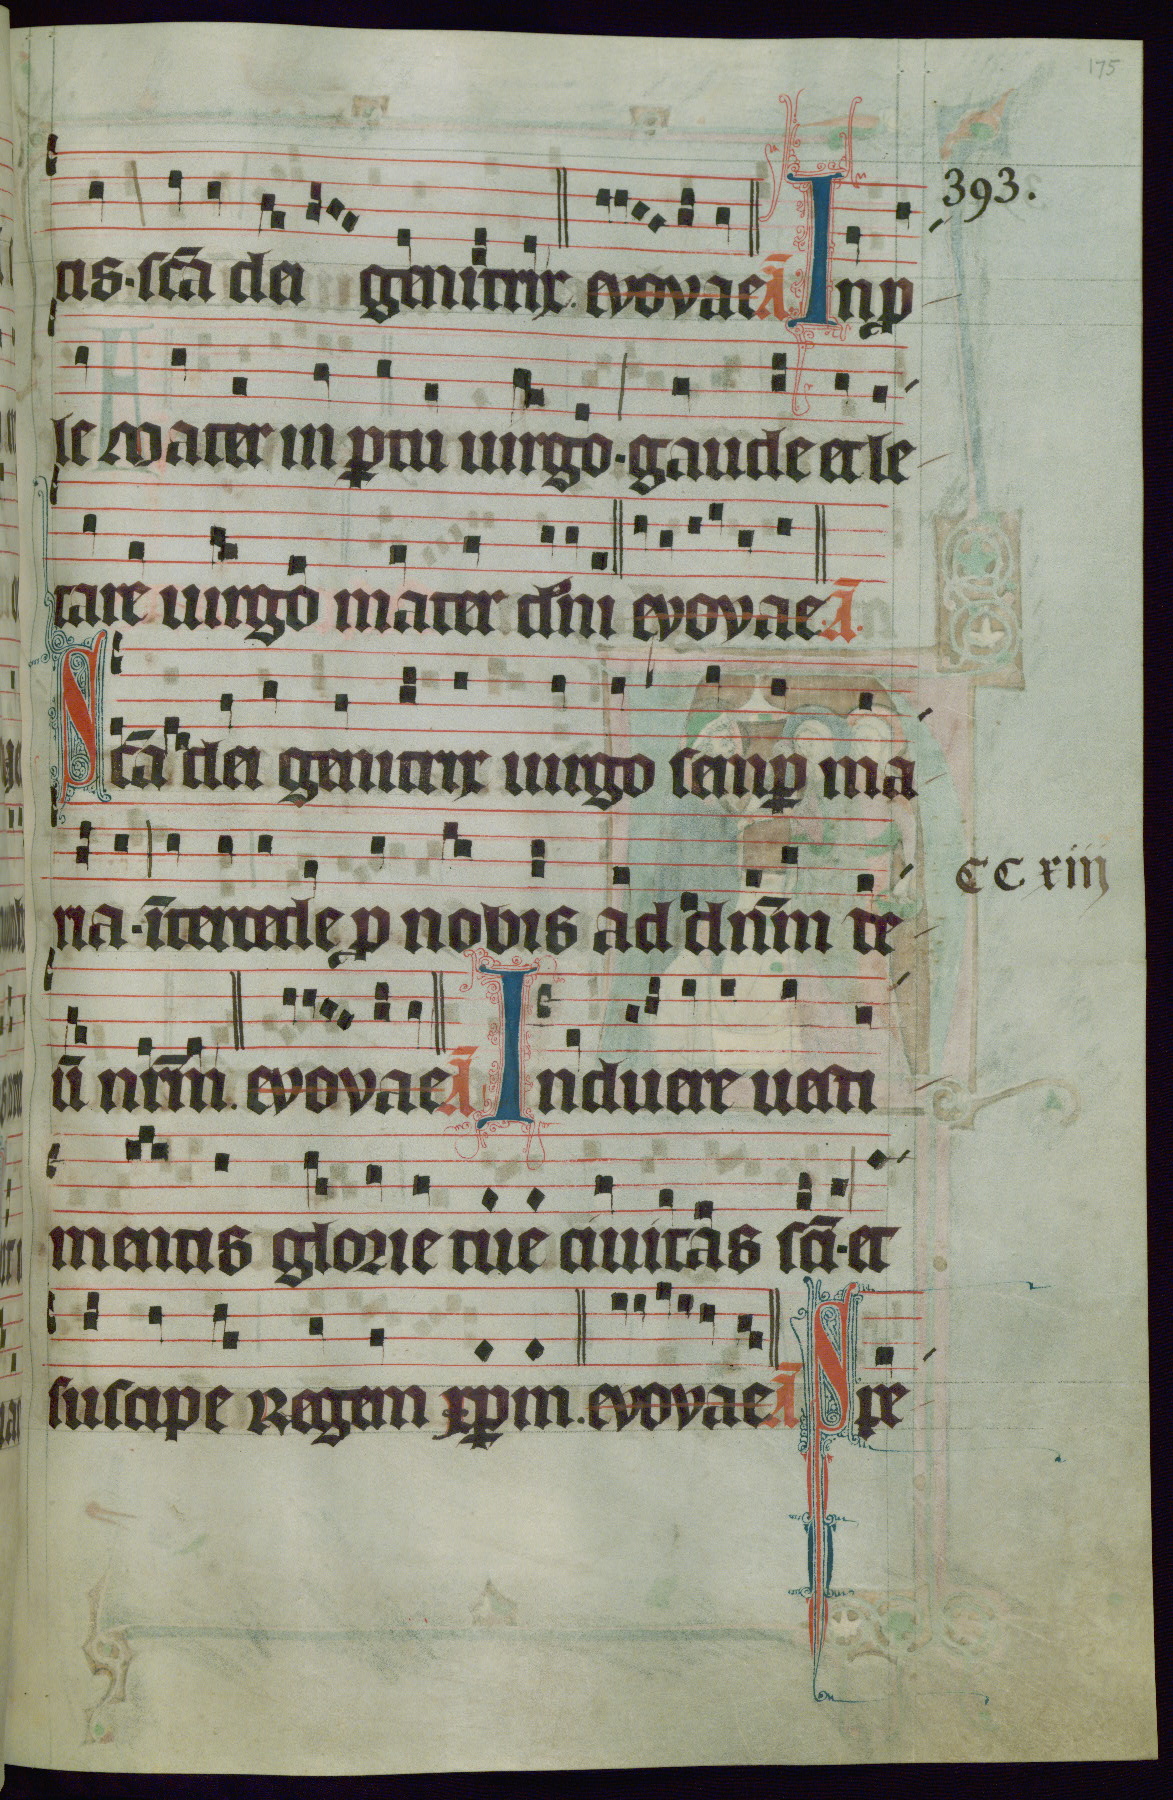 175
393.
tis. sc̄a dei genitrix. evovae Ā Inp
le Mater in ꝑtu uirgo. gaude et le
tare uirgo mater dn̄i evovae. Ā.
Sc̄a dei genitrix uirgo semꝑ ma
ria. īntercede p nobis ad dn̄m te
CC xiij
ū nr̄m. evovae Ā Induere uesti
mentis glorie tue ciuitas sc̄i. et
suscipe Regem xp̄m. evovae Ā Spe